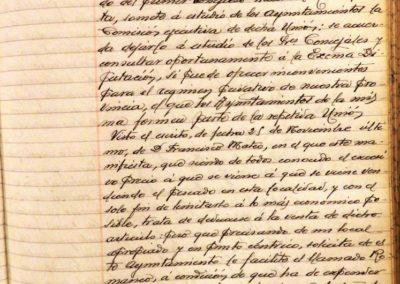 ta, somete á estudio de los Ayuntamientos la
Comision ejecutiva de dicha Unión; se acuer-
da dejarlo á estudio de los Sres Concejales y
consultar oportunamente á la Excma Di-
putación, si puede ofrecer inconvenientes
para el regimen privativo de nuestra Pro-
vincia, el que los Ayuntamientos de la mis-
ma formen parte de la repetida Unión.
Visto el escrito, de fecha 25 de Noviembre últi-
mo, de D. Francisco Mateo, en el que ma-
nifiesta, que siendo de todos conocido el excesi-
vo precio á que se viene á que se viene ven-
diendo el pescado en esta localidad, y con el
solo fin de limitarlo á lo más económico Po-
sible, trata de dedicarse á la venta de dicho
artículo: pero que precisando de un local
apropiado y en punto céntrico, solicita de es-
te Ayuntamiento le facilite el llamado
á condición de que ha de expender